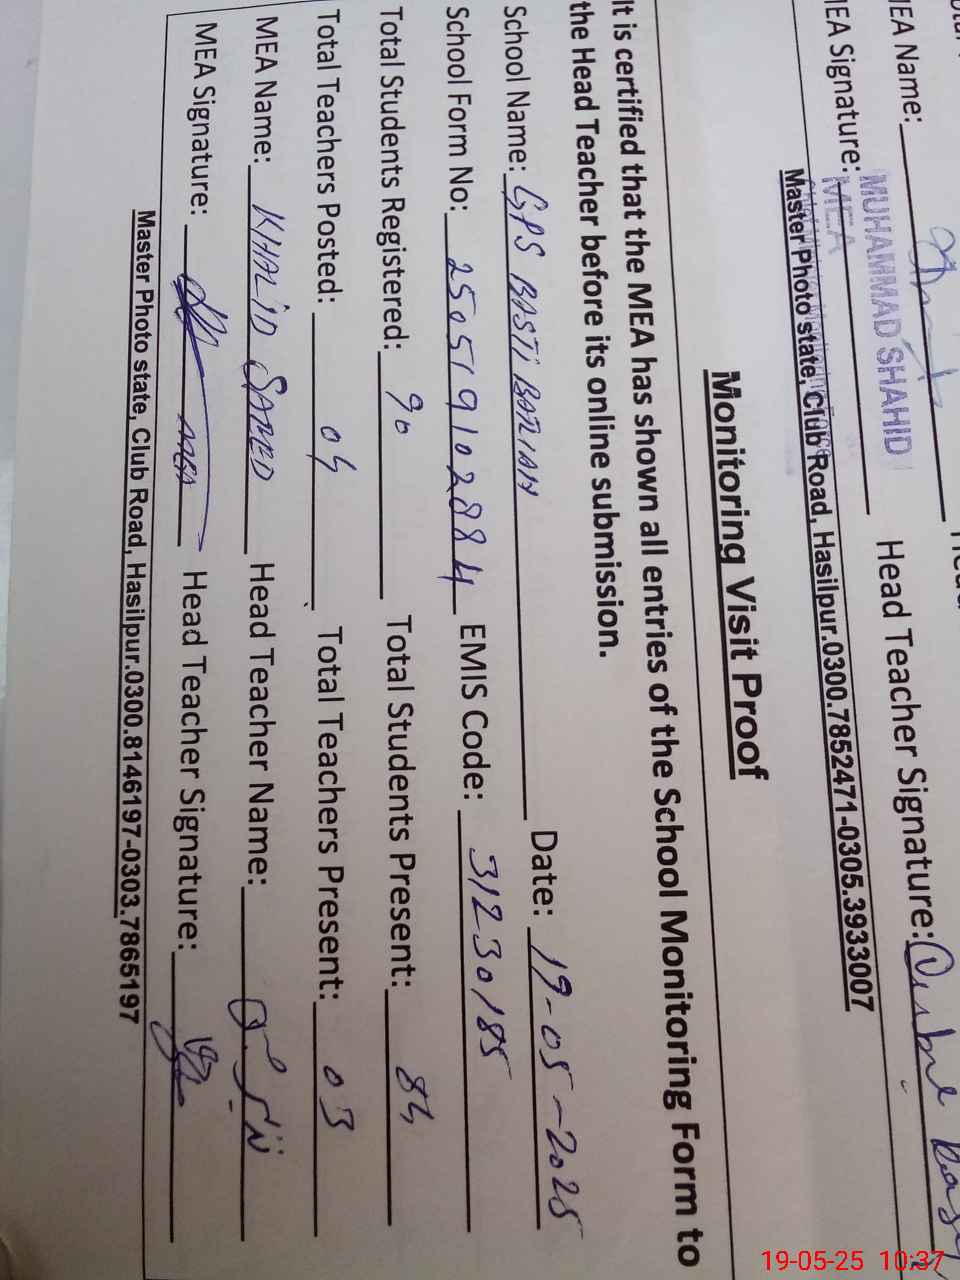 MEA Name:
MUHAMMAD SHAHID
MEA Signature: Head Teacher Signature:
MEA
Master Photo state, Club Road, Hasilpur.0300.7852471-0305.3933007
Monitoring Visit Proof
It is certified that the MEA has shown all entries of the School Monitoring Form to
the Head Teacher before its online submission.
School Name: GPS BASTI Date: 19-05-2025
School Form No: 25051910288 4 EMIS Code: 31230185
Total Students Registered: 90 Total Students Present: 84
Total Teachers Posted: 04 Total Teachers Present: 03
MEA Name: KHALID SAEED Head Teacher Name:
MEA Signature: MEA Head Teacher Signature:
Master Photo state, Club Road, Hasilpur.0300.8146197-0303.7865197
19-05-25 10:37